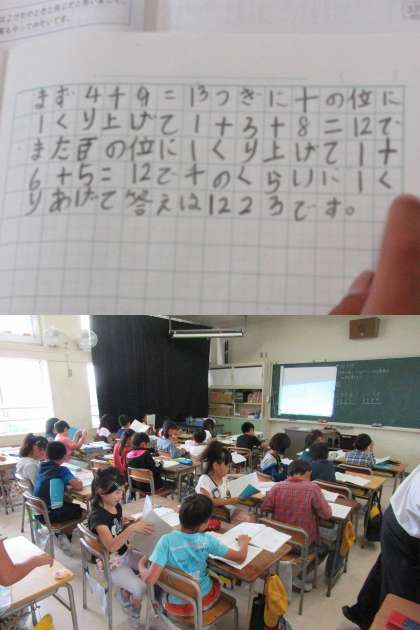 まず4+9=13つぎに十の位に
1くり上げて1+3+8=12で
また百の位に1くり上げて1+
6+5=12で千のくらいに1く
りあげて答えは1223です。